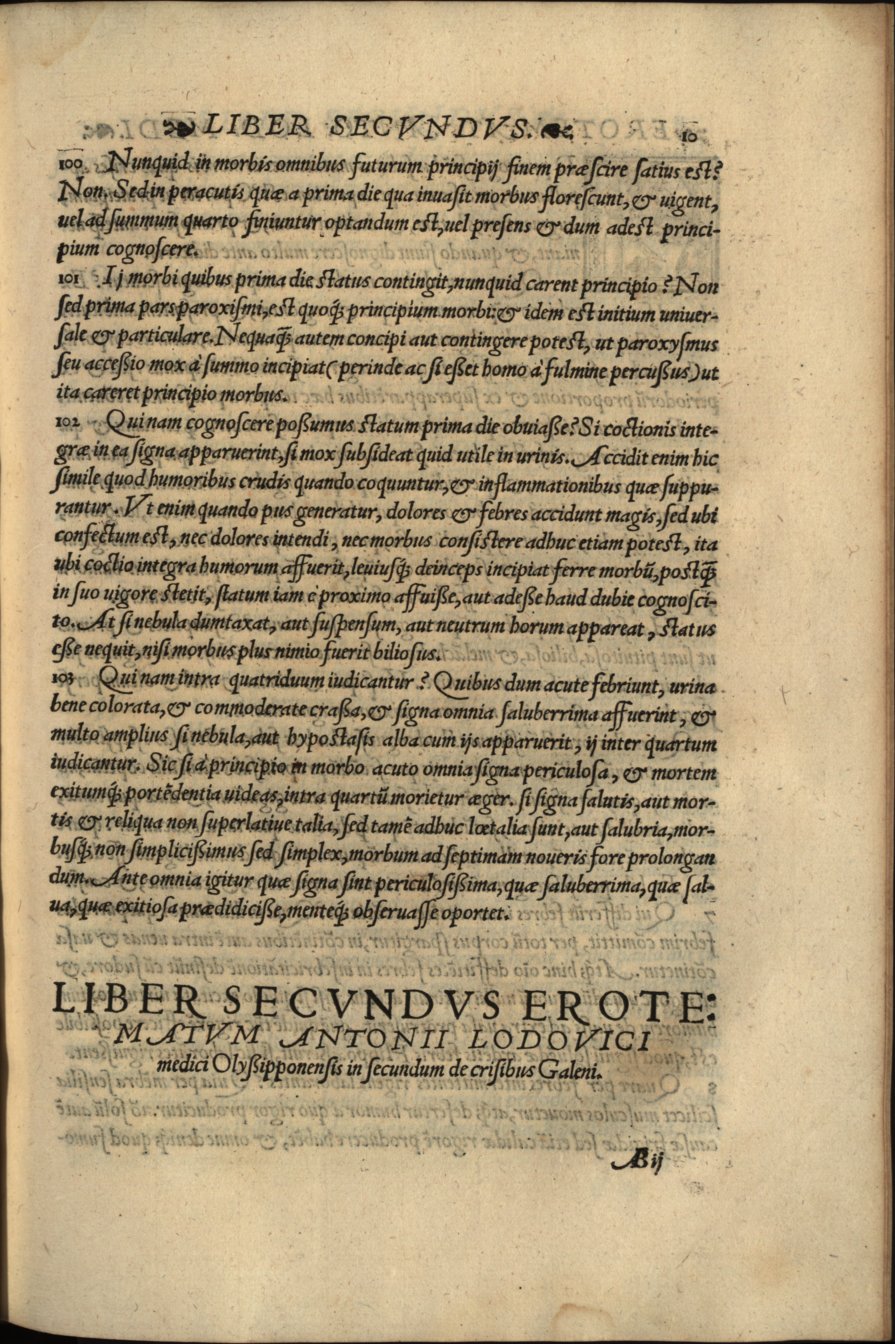 LIBER SECVNDVS. 10
100 Nunquid in morbis omnibus futurum principij finem præscire satius est?
Non. Sed in peracutis quæ a prima die qua inuasit morbus florescunt, & uigent,
uel ad summum quarto finiuntur optandum est, uel presens & dum adest princi-
pium cognoscere.
101 Ij morbi quibus prima die status contingit, nunquid carent principio? Non
sed prima pars paroxismi, est quoq́; principium morbi: & idem est initium uniuer-
sale & particulare. Nequaq̃ autem concipi aut contingere potest, ut paroxysmus
seu accessio mox à summo incipiat (perinde ac si esset homo à fulmine percussus) ut
ita careret principio morbus.
102 Qui nam cognoscere possumus statum prima die obuiasse? Si coctionis inte-
græ in ea signa apparuerint, si mox subsideat quid utile in urinis. Accidit enim hic
simile quod humoribus crudis quando coquuntur, & inflammationibus quæ suppu-
rantur. Vt enim quando pus generatur, dolores & febres accidunt magis, sed ubi
confectum est, nec dolores intendi, nec morbus consistere adhuc etiam potest, ita
ubi coctio integra humorum affuerit, leuiusq́; deinceps incipiat ferre morbū, postq̃
in suo uigore stetit, statum iam è proximo affuisse, aut adesse haud dubie cognosci-
to. At si nebula dumtaxat, aut suspensum, aut neutrum horum appareat, status
esse nequit, nisi morbus plus nimio fuerit biliosus.
103 Qui nam intra quatriduum iudicantur? Quibus dum acute febriunt, urina
bene colorata, & commoderate crassa, & signa omnia saluberrima affuerint, &
multo amplius si nebula, aut hypostasis alba cum ijs apparuerit, ij inter quartum
iudicantur. Sic si à principio in morbo acuto omnia signa periculosa, & mortem
exitumq́; portēdentia uideas, intra quartū morietur æger. si signa salutis, aut mor-
tis & reliqua non superlatiue talia, sed tamē adhuc lœtalia sunt, aut salubria, mor-
busq́; non simplicissimus sed simplex, morbum ad septimam noueris fore prolongan
dum. Ante omnia igitur quæ signa sint periculosissima, quæ saluberrima, quæ sal-
ua, quæ exitiosa prædidicisse, menteq́; obseruasse oportet.
LIBER SECVNDVS EROTE:
MATVM ANTONII LODOVICI
medici Olyssipponensis in secundum de crisibus Galeni.
AB ij